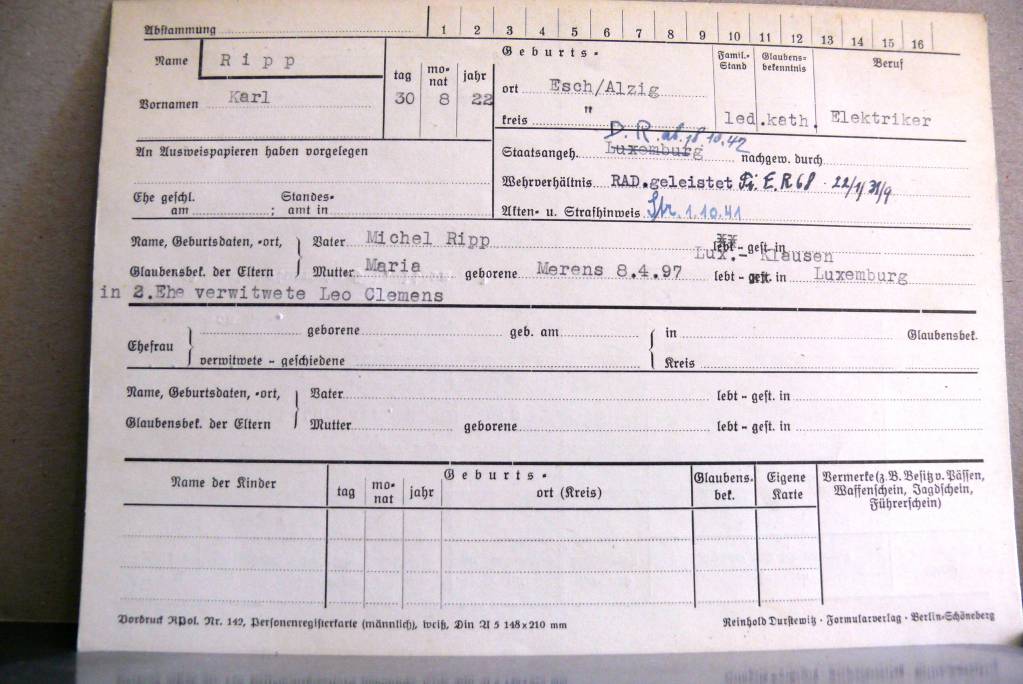 Abstammung 1 2 3 4 5 6 7 8 9 10 11 12 13 14 15 16
Name Ripp tag monat jahr Geburts- Famil.-Stand Glaubensbekenntnis Beruf
ort Esch/Alzig
Vornamen Karl 30 8 22 kreis " led. kath. Elektriker
D. R. ab 18 10. 42
An Ausweispapieren haben vorgelegen Staatsangeh. Luxemburg nachgew. durch
Wehrverhältnis RAD. geleistet E. R 68 · 22/1/31/9
Ehe geschl. Standes-
am ; amt in Akten- u. Strafhinweis Str. 1.10.41
Name, Geburtsdaten, -ort, Vater Michel Ripp lebt - gest in
Lux.- Klausen
Glaubensbek. der Eltern Mutter Maria geborene Merens 8.4.97 lebt - gest. in Luxemburg
in 2.Ehe verwitwete Leo Clemens
Ehefrau geborene geb. am in Glaubensbek.
verwitwete - geschiedene Kreis
Name, Geburtsdaten, -ort, Vater lebt - gest. in
Glaubensbek. der Eltern Mutter geborene lebt - gest. in
Name der Kinder tag monat jahr Geburts- ort (Kreis) Glaubensbek. Eigene Karte Vermerke (z. B. Besitz v. Pässen,
Waffenschein, Jagdschein,
Führerschein)
Vordruck RPol. Nr. 142, Personenregisterkarte (männlich), weiß, Din A 5 148 x 210 mm Reinhold Durstewitz · Formularverlag · Berlin-Schöneberg